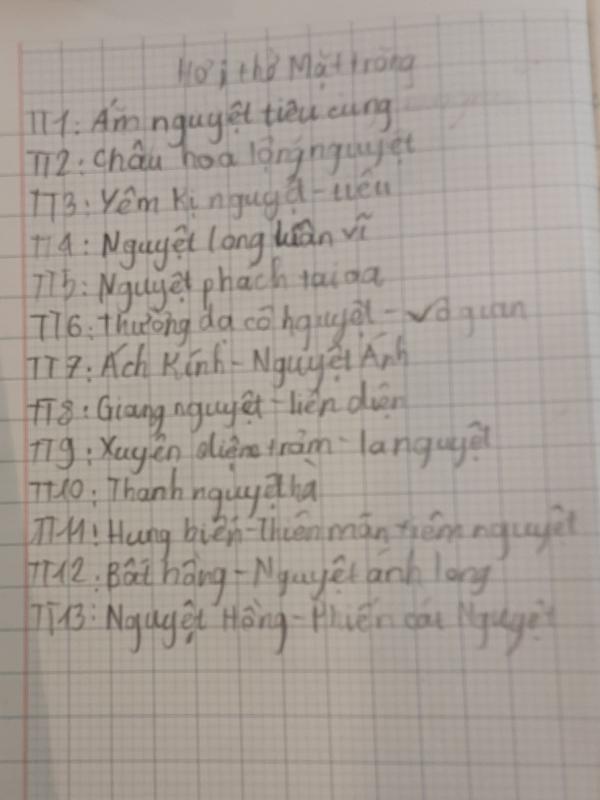 Hơi thở Mặt trăng
TT1: Ám nguyệt tiêu cung
TT2: Châu hoa lộng nguyệt
TT3: Yêm Kị nguyệt - tiêu
TT4: Nguyệt long luân vĩ
TT5: Nguyệt phách tai oa
TT6: Thường dạ cô nguyệt - vô gian
TT7: Ách Kính - Nguyệt Ánh
TT8: Giang nguyệt - liên diện
TT9: Xuyên diện trảm - la nguyệt
TT10: Thanh nguyệt hà
TT11: Hung biến - Thiên mãn tiêm nguyệt
TT12: Bất hằng - Nguyệt ánh long
TT13: Nguyệt Hồng - Phiến cát Nguyệt